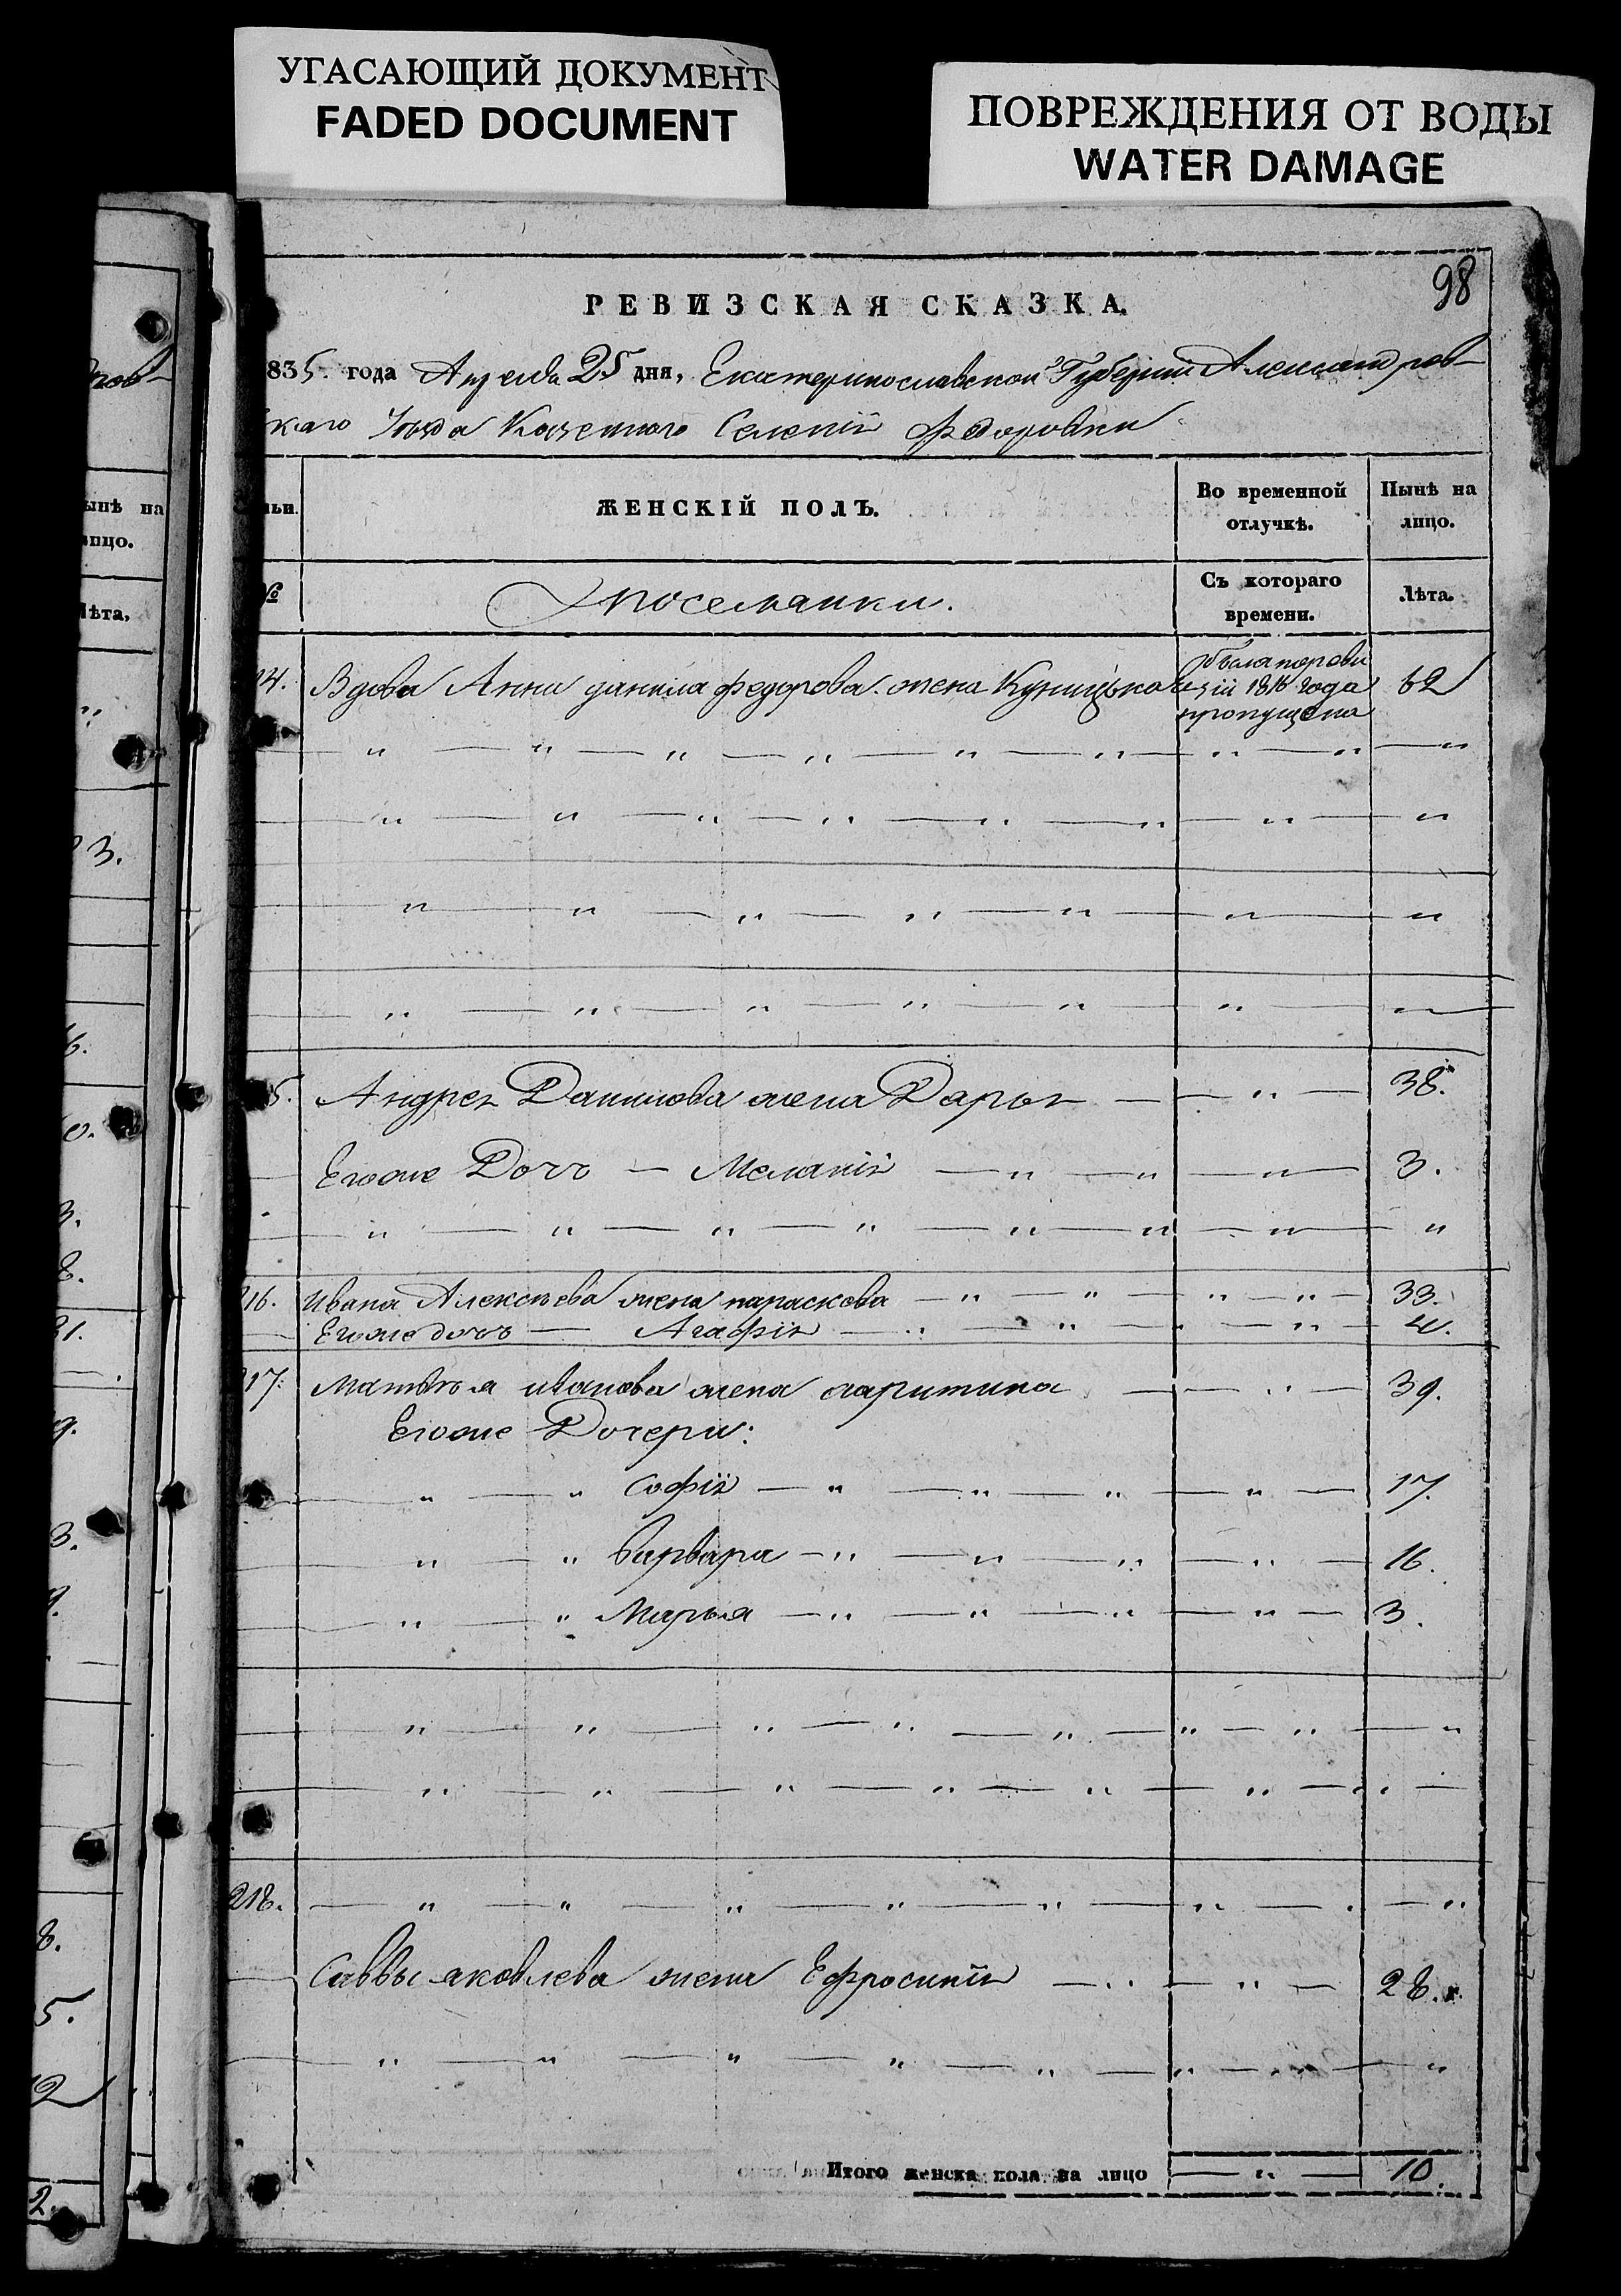 УГАСАЮЩИЙ ДОКУМЕНТ
FADED DOCUMENT
ПОВРЕЖДЕНИЯ ОТ ВОДЫ
WATER DAMAGE
98
РЕВИЗСКАЯ СКАЗКА.
835. года Апреля 25 дня, Екатеринославской Губернии Александров-
скаго Уезда Казенного Селенiя Федоровки
ЖЕНСКІЙ ПОЛЪ.
Во временной отлучкѣ.
Нынѣ на лицо.
№
Поселянки.
Съ котораго времени.
Лѣта.
14. Вдова Анна данила федорова жена была пореви
зiи 1816 года 62
пропущена
5. Андрея Данилова жена Дарья 38.
Егоже Дочь — Меланiя 3.
216. Ивана Алексѣева жена параскова 33.
Егоже дочь — Агафiя 4.
217. Матвѣя иванова жена харитина 39.
Егоже Дочери:
Софiя 17.
Варвара 16.
Марья 3.
218.
Саввы яковлева жена Ефросинiя 28.
Итого женска пола на лицо 10.